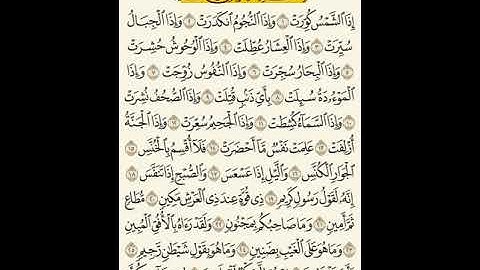 إِذَا ٱلشَّمۡسُ كُوِّرَتۡ ١ وَإِذَا ٱلنُّجُومُ ٱنكَدَرَتۡ ٢ وَإِذَا ٱلۡجِبَالُ
سُيِّرَتۡ ٣ وَإِذَا ٱلۡعِشَارُ عُطِّلَتۡ ٤ وَإِذَا ٱلۡوُحُوشُ حُشِرَتۡ
٥ وَإِذَا ٱلۡبِحَارُ سُجِّرَتۡ ٦ وَإِذَا ٱلنُّفُوسُ زُوِّجَتۡ ٧ وَإِذَا
ٱلۡمَوۡءُۥدَةُ سُئِلَتۡ ٨ بِأَيِّ ذَنۢبٖ قُتِلَتۡ ٩ وَإِذَا ٱلصُّحُفُ نُشِرَتۡ
١٠ وَإِذَا ٱلسَّمَآءُ كُشِطَتۡ ١١ وَإِذَا ٱلۡجَحِيمُ سُعِّرَتۡ ١٢ وَإِذَا ٱلۡجَنَّةُ
أُزۡلِفَتۡ ١٣ عَلِمَتۡ نَفۡسٞ مَّآ أَحۡضَرَتۡ ١٤ فَلَآ أُقۡسِمُ بِٱلۡخُنَّسِ ١٥
ٱلۡجَوَارِ ٱلۡكُنَّسِ ١٦ وَٱلَّيۡلِ إِذَا عَسۡعَسَ ١٧ وَٱلصُّبۡحِ إِذَا تَنَفَّسَ ١٨
إِنَّهُۥ لَقَوۡلُ رَسُولٖ كَرِيمٖ ١٩ ذِي قُوَّةٍ عِندَ ذِي ٱلۡعَرۡشِ مَكِينٖ ٢٠ مُّطَاعٖ
ثَمَّ أَمِينٖ ٢١ وَمَا صَاحِبُكُم بِمَجۡنُونٖ ٢٢ وَلَقَدۡ رَءَاهُ بِٱلۡأُفُقِ ٱلۡمُبِينِ
٢٣ وَمَا هُوَ عَلَى ٱلۡغَيۡبِ بِضَنِينٖ ٢٤ وَمَا هُوَ بِقَوۡلِ شَيۡطَٰنٖ رَّجِيمٖ ٢٥